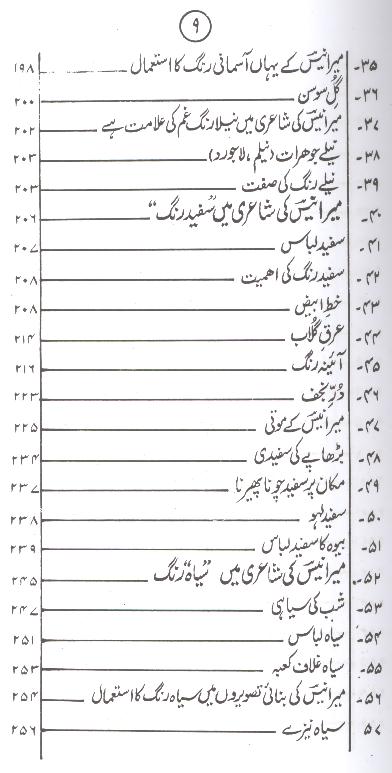 ۹
۳۵۔ میر انیسؔ کے یہاں آسمانی رنگ کا استعمال ۱۹۸
۳۶۔ گلِ سوسن ۲۰۰
۳۷۔ میر انیسؔ کی شاعری میں نیلا رنگ غم کی علامت ہے ۲۰۲
۳۸۔ نیلے جوہرات (نیلم، لاجورد) ۲۰۳
۳۹۔ نیلے رنگ کی صفت ۲۰۳
۴۰۔ میر انیسؔ کی شاعری میں "سفید رنگ" ۲۰۶
۴۱۔ سفید لباس ۲۰۷
۴۲۔ سفید رنگ کی اہمیت ۲۰۸
۴۳۔ خطِ ابیض ۲۰۸
۴۴۔ عرقِ گلاب ۲۱۴
۴۵۔ آئینہ رنگ ۲۱۶
۴۶۔ دُرِّ نجف ۲۲۳
۴۷۔ میر انیسؔ کے موتی ۲۲۵
۴۸۔ بڑھاپے کی سفیدی ۲۳۴
۴۹۔ مکان پر سفید چونا پھیرنا ۲۳۷
۵۰۔ سفید لہو ۲۳۸
۵۱۔ بیوہ کا سفید لباس ۲۳۹
۵۲۔ میر انیسؔ کی شاعری میں "سیاہ" رنگ ۲۴۵
۵۳۔ شب کی سیاہی ۲۴۷
۵۴۔ سیاہ لباس ۲۵۱
۵۵۔ سیاہ غلاف کعبہ ۲۵۳
۵۶۔ میر انیسؔ کی بنائی تصویروں میں سیاہ رنگ کا استعمال ۲۵۴
۵۷۔ سیاہ نیزے ۲۵۶